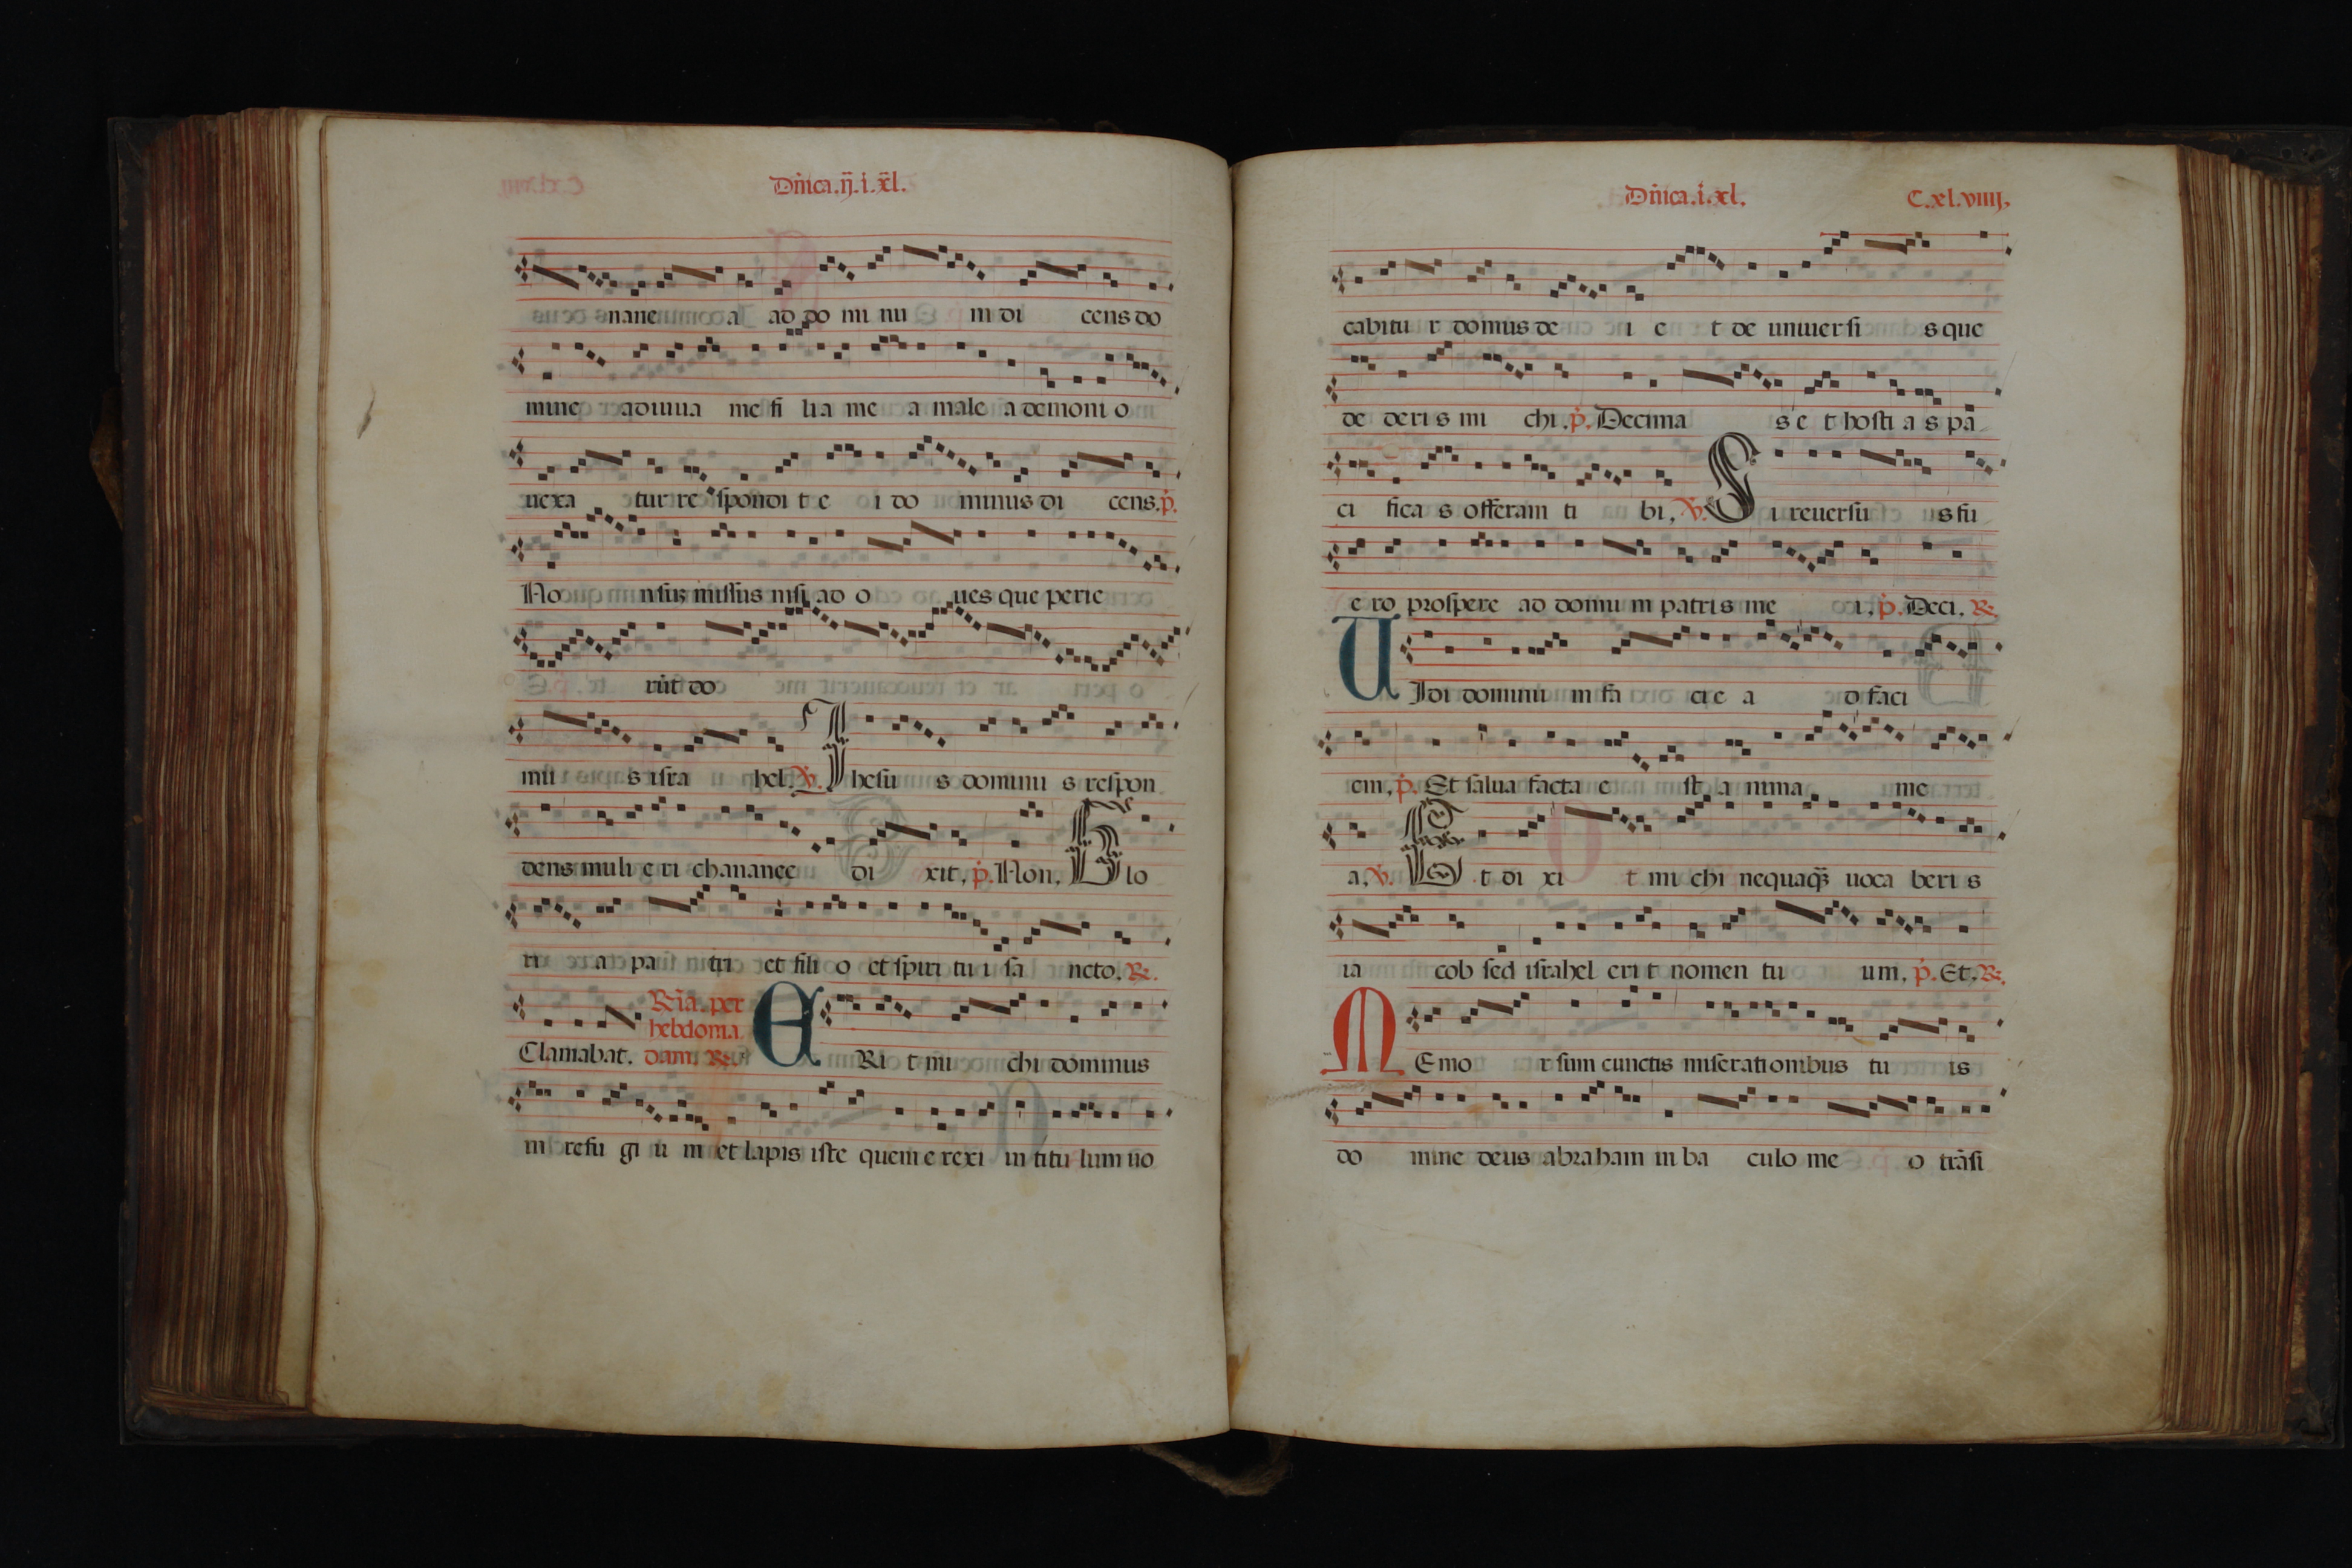 Dn̄ica.ij.i.xl.
nane a ad do mi nu m di cens do
mine adiuua me fi lia me a male a demoni o
uexa tur re spondi t e i do minus di cens. p̄.
No nsuꝫ missus nisi ad o ues que perie
rūt do
mu s isra hel. V̄. Ihesu s dominu s respon
dens muli e ri chananee di xit, p̄. Non, Glo
ri a pa tri et fili o et spiri tu i sa ncto. R̄.
Clamabat. R̄ia. per hebdoma dam. R̄. ERi t mi chi dominus
in refu gi u m et lapis iste quem e rexi in titu lum uo
Dn̄ica.i.xl.
C.xl.viiij,
cabitu r domus de i e t de uniuersi s que
de deri s mi chi. p̄. Decima s e t hosti a s pa
ci fica s offeram ti bi, V̄. Si reuersu s fu
e ro prospere ad domu m patri s me i, p̄. Deci. R̄.
UIdi dominu m fa ci e a d faci
em, p̄. Et salua facta e st a nima me
a, V̄. Et di xi t mi chi nequaq̄ȝ uoca beri s
ia cob sed israhel eri t nomen tu um, p̄. Et, R̄.
MEmo r sum cunctis miserationibus tu is
do mine deus abraham in ba culo me o trāsi